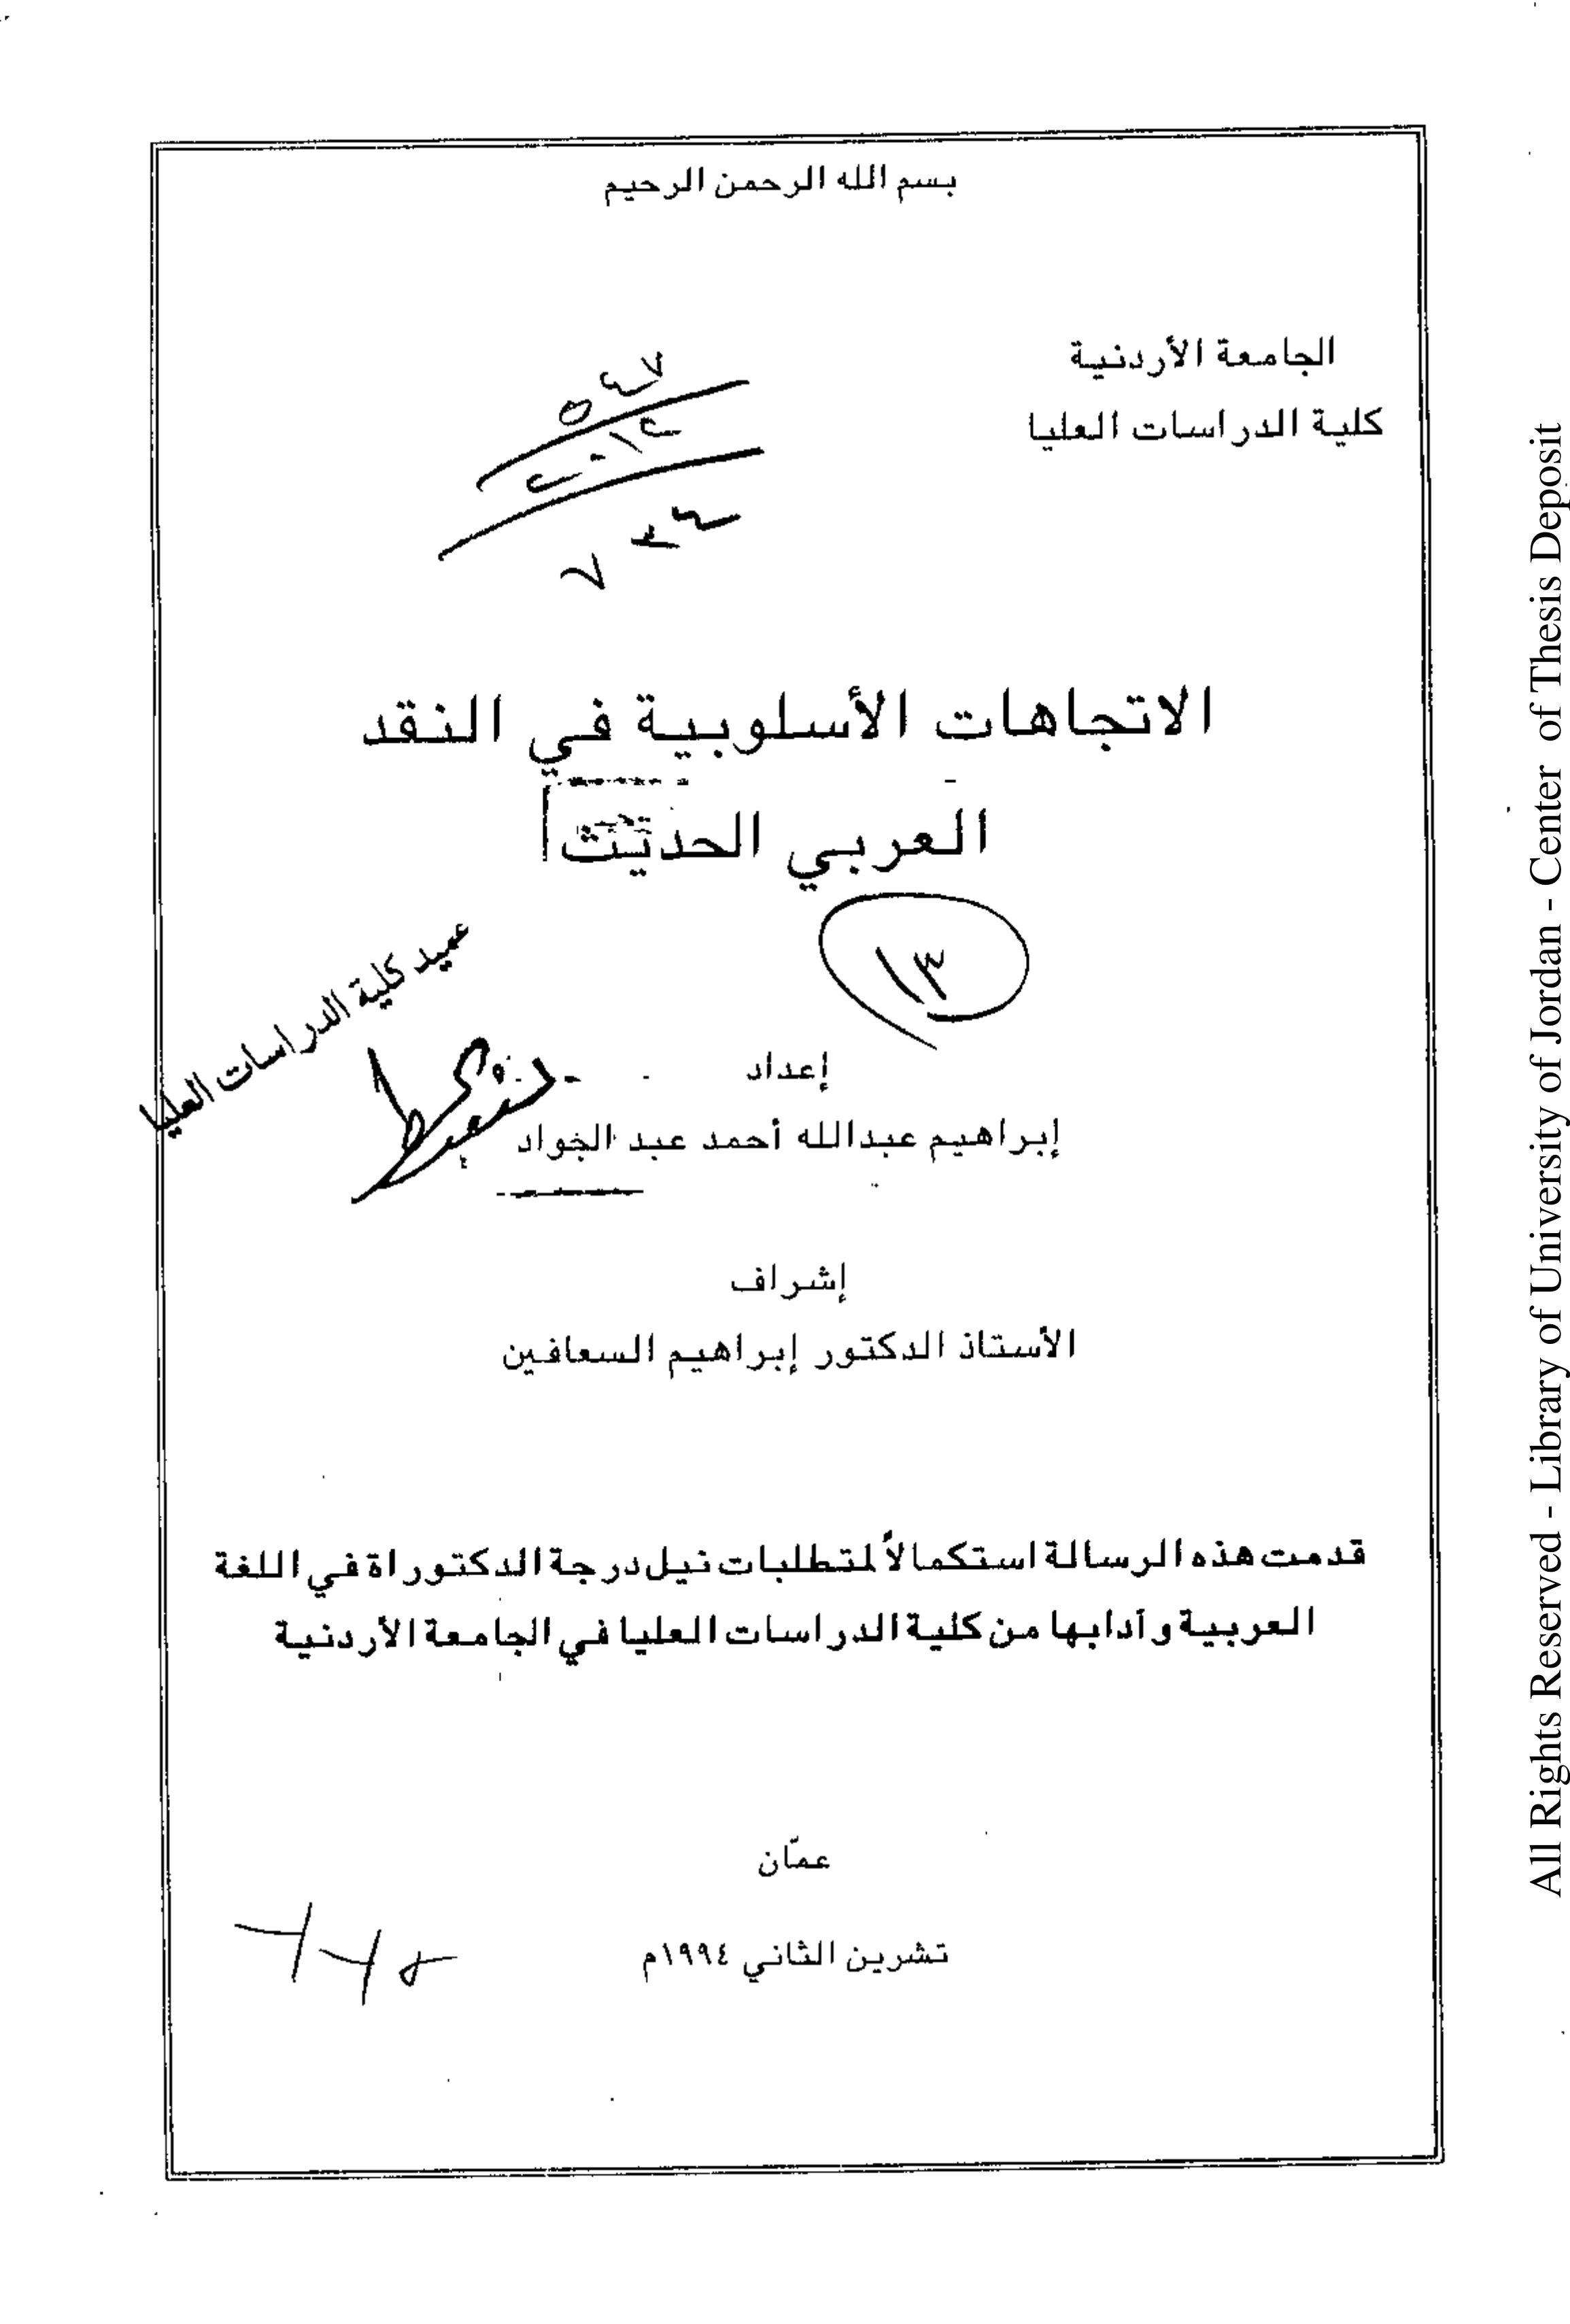 بسم الله الرحمن الرحيم
الجامعة الأردنية
كلية الدراسات العليا
٥٤٧
٢٠١٢
٧٣٤
الاتجاهات الأسلوبية في النقد
العربي الحديث
١٣
عميد كلية الدراسات العليا
إعداد
إبراهيم عبدالله أحمد عبد الجواد
إشراف
الأستاذ الدكتور إبراهيم السعافين
قدمت هذه الرسالة استكمالاً لمتطلبات نيل درجة الدكتوراة في اللغة
العربية وآدابها من كلية الدراسات العليا في الجامعة الأردنية
عمّان
تشرين الثاني ١٩٩٤م
All Rights Reserved - Library of University of Jordan - Center of Thesis Deposit